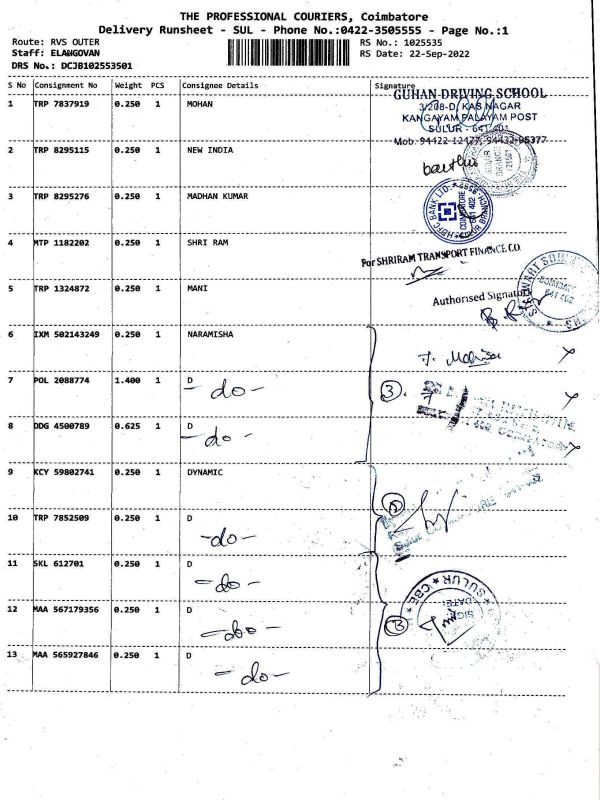 THE PROFESSIONAL COURIERS, Coimbatore
Delivery Runsheet - SUL - Phone No.:0422-3505555 - Page No.:1
Route: RVS OUTER
RS No.: 1025535
Staff: ELANGOVAN
RS Date: 22-Sep-2022
DRS No.: DCJB102553501
S No Consignment No Weight PCS Consignee Details Signature
GUHAN DRIVING SCHOOL
1 TRP 7837919 0.250 1 MOHAN
3/208-D, KAS NAGAR
KANGAYAM PALAYAM POST
SULUR - 641 401
Mob: 94422 12177, 94432 95377
2 TRP 8295115 0.250 1 NEW INDIA
3 TRP 8295276 0.250 1 MADHAN KUMAR
HDFC BANK LTD.
COIMBATORE
641 402
4 MTP 1182202 0.250 1 SHRI RAM
For SHRIRAM TRANSPORT FINANCE CO.
5 TRP 1324872 0.250 1 MANI
Authorised Signatory
641 402
6 IXM 502143249 0.250 1 NARAMISHA
7 POL 2088774 1.400 1 D
- do -
3.
8 DDG 4500789 0.625 1 D
- do -
9 KCY 59802741 0.250 1 DYNAMIC
10 TRP 7852509 0.250 1 D
-do-
11 SKL 612701 0.250 1 D
- do -
SULUR * CBE
12 MAA 567179356 0.250 1 D
13 MAA 565927846 0.250 1 D
- do -